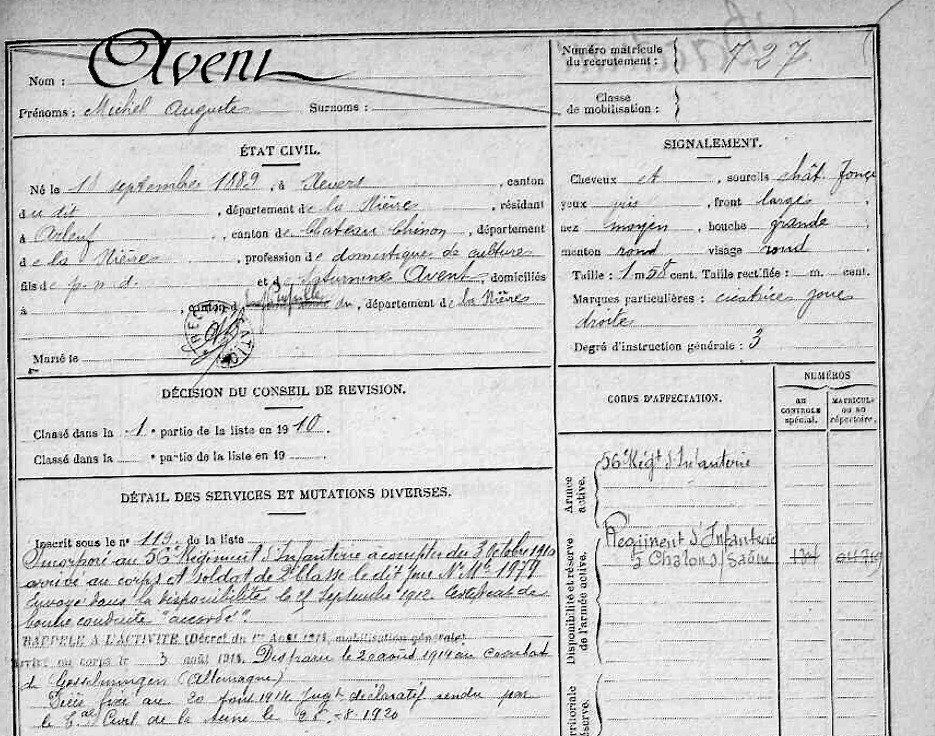 Nom : Avent
Prénoms : Michel Auguste Surnoms :
Numéro matricule du recrutement : 727
Classe de mobilisation :
ÉTAT CIVIL.
Né le 18 septembre 1889, à Nevers, canton
du dit, département de la Nièvre, résidant
à Arleuf, canton de Chateau Chinon, département
de la Nièvre, profession de domestique de culture
fils de p. n. d. et de Saturnine Avent, domiciliés
à , canton d du , département de la Nièvre
Marié le
SIGNALEMENT.
Cheveux et , sourcils chât. foncé
yeux gris , front large
nez moyen , bouche grande
menton rond visage rond
Taille : 1 m 58 cent. Taille rectifiée : m. cent.
Marques particulières : cicatrice joue
droite
Degré d'instruction générale : 3
DÉCISION DU CONSEIL DE REVISION.
Classé dans la 1e partie de la liste en 1910.
Classé dans la e partie de la liste en 19
CORPS D'AFFECTATION.
NUMÉROS
au contrôle spécial.
matricule ou au répertoire.
Armée active.
56e Régt d'Infanterie
Disponibilité et réserve de l'armée active.
Régiment d'Infanterie
à Chalon s/ Saône
territoriale
réserve.
DÉTAIL DES SERVICES ET MUTATIONS DIVERSES.
Inscrit sous le n° 119 de la liste
Incorporé au 56e Régiment d'Infanterie à compter du 3 Octobre 1910
arrivé au corps et soldat de 2e classe le dit jour N° Mle 1979
Envoyé dans la disponibilité le 25 Septembre 1912 Certificat de
bonne conduite "accordé".
RAPPELÉ A L'ACTIVITÉ (Décret du 1er Août 1914, mobilisation générale)
Arrivé au corps le 3 août 1914. Disparu le 20 août 1914 au combat
de Gosselmingen (Allemagne)
Décès fixé au 20 août 1914 Jugt déclaratif rendu par
le Bal Civil de la Seine le 25-8-1920